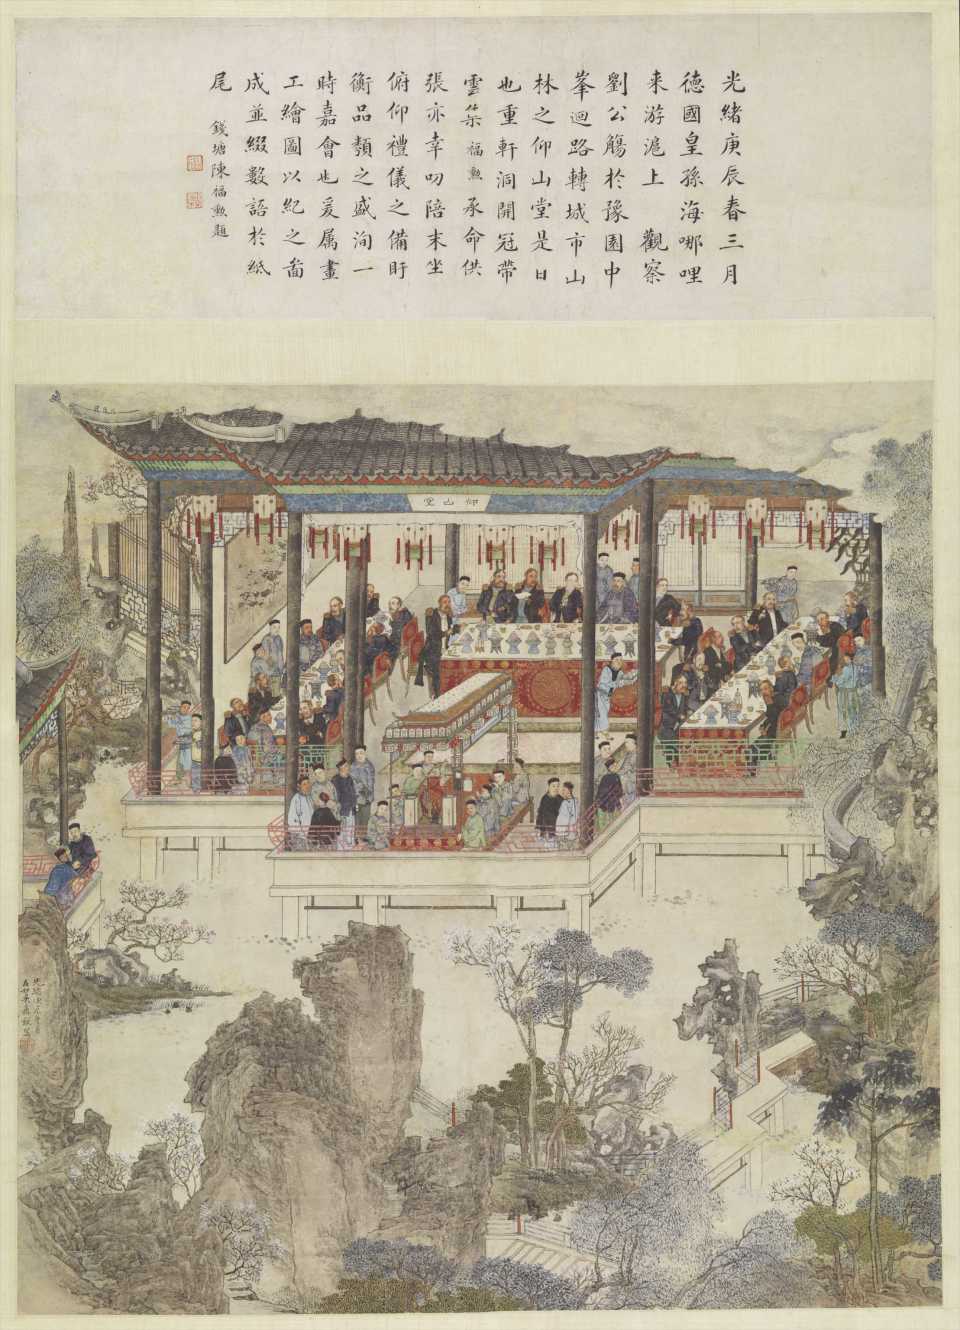 光緒庚辰春三月
德國皇孫海哪哩
来游滬上 觀察
劉公觴於豫園中
峯迴路轉城市山
林之仰山堂是日
也重軒洞開冠帶
雲集福勲承命供
張亦幸叨陪末坐
俯仰禮儀之備盱
衡品類之盛洵一
時嘉會也爰属畫
工繪圖以紀之啚
成並綴數語於紙
尾
錢塘陳福勲題
仰山堂